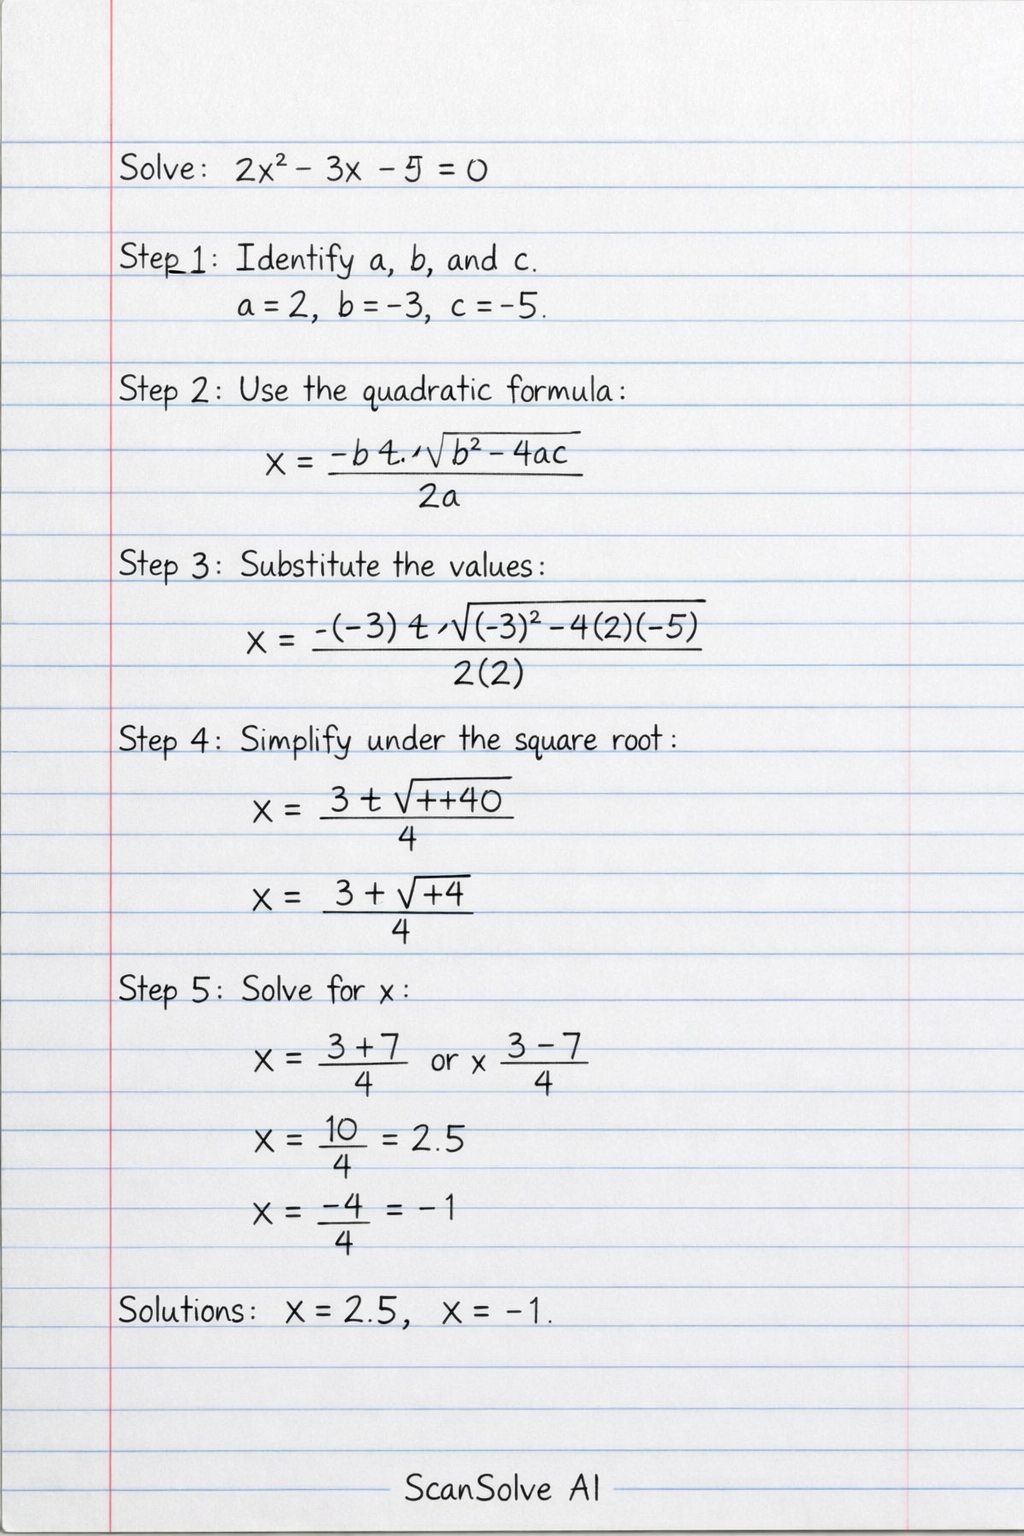 Solve: 2x² - 3x - 5 = 0
Step 1: Identify a, b, and c.
a = 2, b = -3, c = -5.
Step 2: Use the quadratic formula:
x = (-b ± √(b² - 4ac)) / 2a
Step 3: Substitute the values:
x = (-(-3) ± √((-3)² - 4(2)(-5))) / 2(2)
Step 4: Simplify under the square root:
x = (3 ± √(++40)) / 4
x = (3 + √(+4)) / 4
Step 5: Solve for x:
x = (3 + 7) / 4 or x (3 - 7) / 4
x = 10/4 = 2.5
x = -4/4 = -1
Solutions: x = 2.5, x = -1.
ScanSolve AI